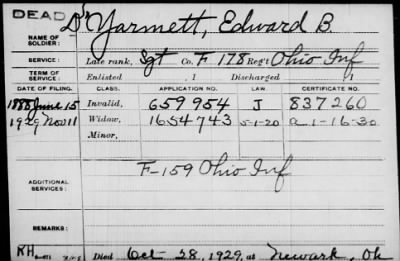 DEAD
D'Yarmett, Edward B.
NAME OF
SOLDIER:
SERVICE: Late rank, Sgt Co. F 178 Reg't Ohio Inf
TERM OF
SERVICE: Enlisted 1 Discharged 1
DATE OF FILING. CLASS. APPLICATION NO. LAW. CERTIFICATE NO.
1888 June 15 Invalid, 659954 J 837260
1929 Nov 11 Widow, 1654743 5-1-20 a 1-16-30
Minor,
F-159 Ohio Inf
ADDITIONAL
SERVICES:
REMARKS:
RH Died Oct 28, 1929, at Newark, Oh